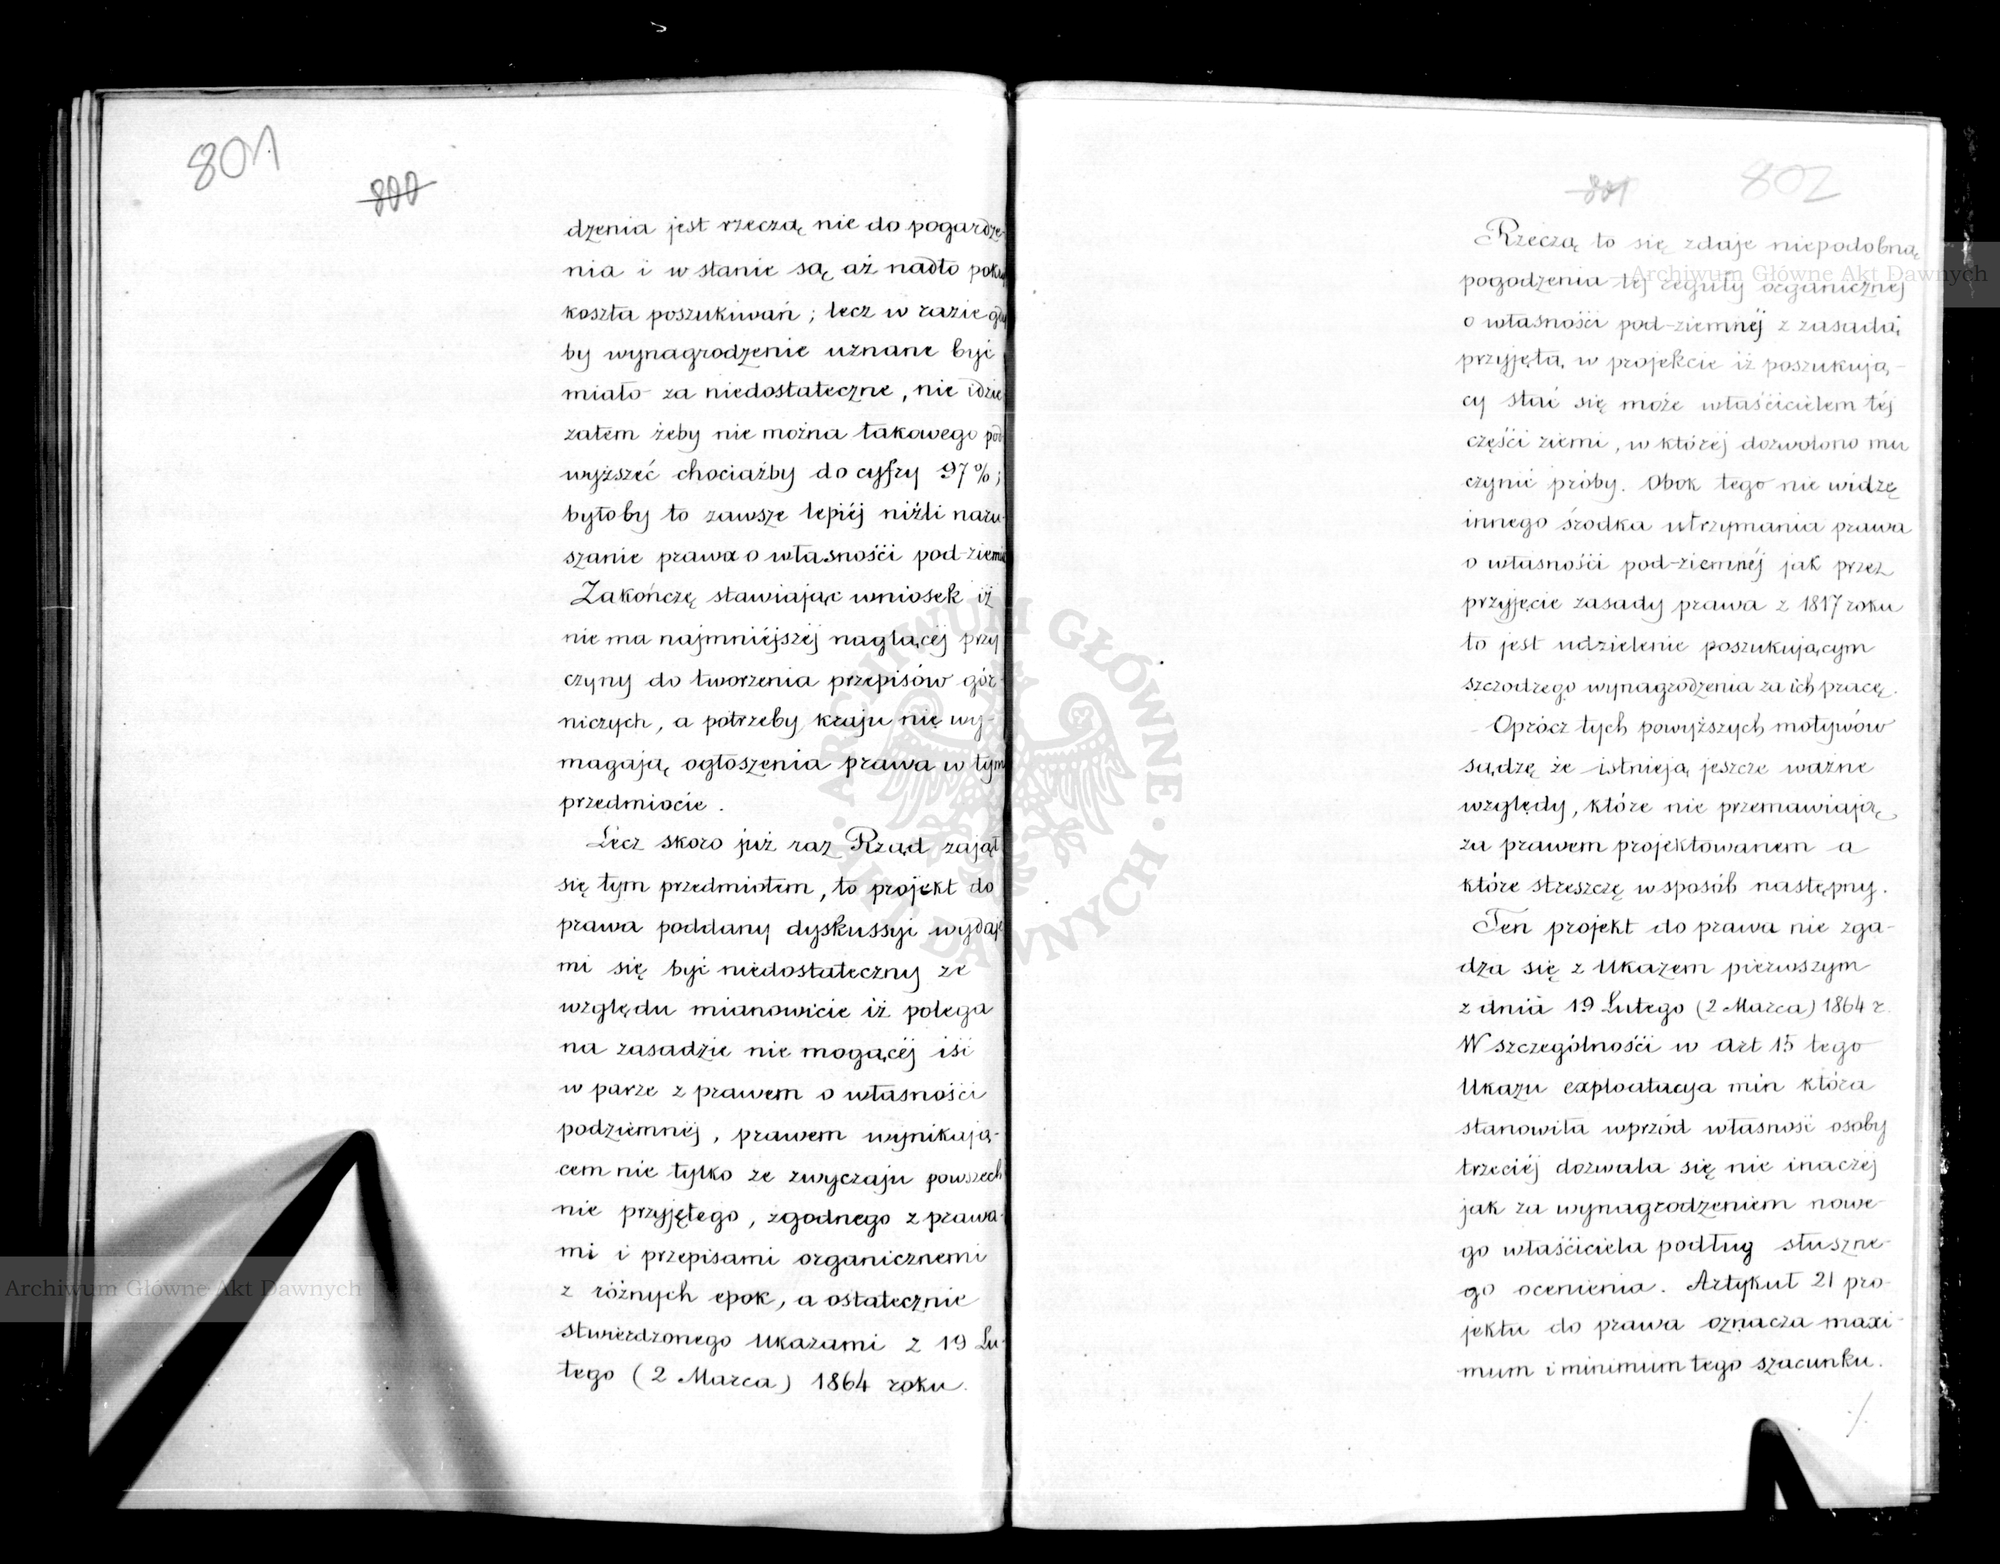 801
800
dzenia jest rzeczą nie do pogardze-
nia i w stanie są aż nadto
koszta poszukiwań; lecz w razie gdy
by wynagrodzenie uznane być
miało za niedostateczne, nie idzie
zatem żeby nie można takowego pod
wyższeć chociażby do cyfry 97%;
byłoby to zawsze lepiéj niźli naru-
szanie prawa o własnośći pod-ziem
Zakończę stawiając wniosek iż
nie ma najmniéjszéj naglącéj przy
czyny do tworzenia przepisów gór-
niczych, a potrzeby kraju nie wy-
magają ogłoszenia prawa w tym
przedmiocie.
Lecz skoro już raz Rząd zajął
się tym przedmiotem, to projekt do
prawa poddany dyskussyi wydaje
mi się być niedostateczny ze
względu mianowicie iż polega
na zasadzie nie mogącéj iść
w parze z prawem o własnośći
podziemnéj, prawem wynikają-
cem nie tylko ze zwyczaju powszech
nie przyjętego, zgodnego z prawa-
mi i przepisami organicznemi
z różnych epok, a ostatecznie
stwierdzonego Ukazami z 19 Lu-
tego (2 Marca) 1864 roku.
801
802
Rzeczą to się zdaje niepodobną
pogodzenia téj reguły organicznéj
o własnośći pod-ziemnéj z zasadą
przyjętą w projekcie iż poszukują-
cy stać się może właśćicielem téj
częśći ziemi, w któréj dozwolono mu
czynić próby. Obok tego nie widzę
innego środka utrzymania prawa
o własnośći pod-ziemnéj jak przez
przyjęcie zasady prawa z 1817 roku
to jest udzielenie poszukującym
szczodrego wynagrodzenia za ich pracę.
- Oprócz tych powyższych motywów
sądzę że istnieją jeszcze ważne
względy, które nie przemawiają
za prawem projektowanem a
które streszczę w sposób następny.
Ten projekt do prawa nie zga-
dza się z Ukazem pierwszym
z dnia 19 Lutego (2 Marca) 1864 r.
W szczególnośći w Art 15 tego
Ukazu exploatacya min która
stanowiła wprzód własność osoby
trzeciéj dozwala się nie inaczéj
jak za wynagrodzeniem nowe-
go właśćiciela podług słuszne-
go ocenienia. Artykuł 21 pro-
jektu do prawa oznacza maxi-
mum i minimum tego szacunku.
./.
Archiwum Główne Akt Dawnych
Archiwum Główne Akt Dawnych
ARCHIWUM GŁÓWNE AKT DAWNYCH